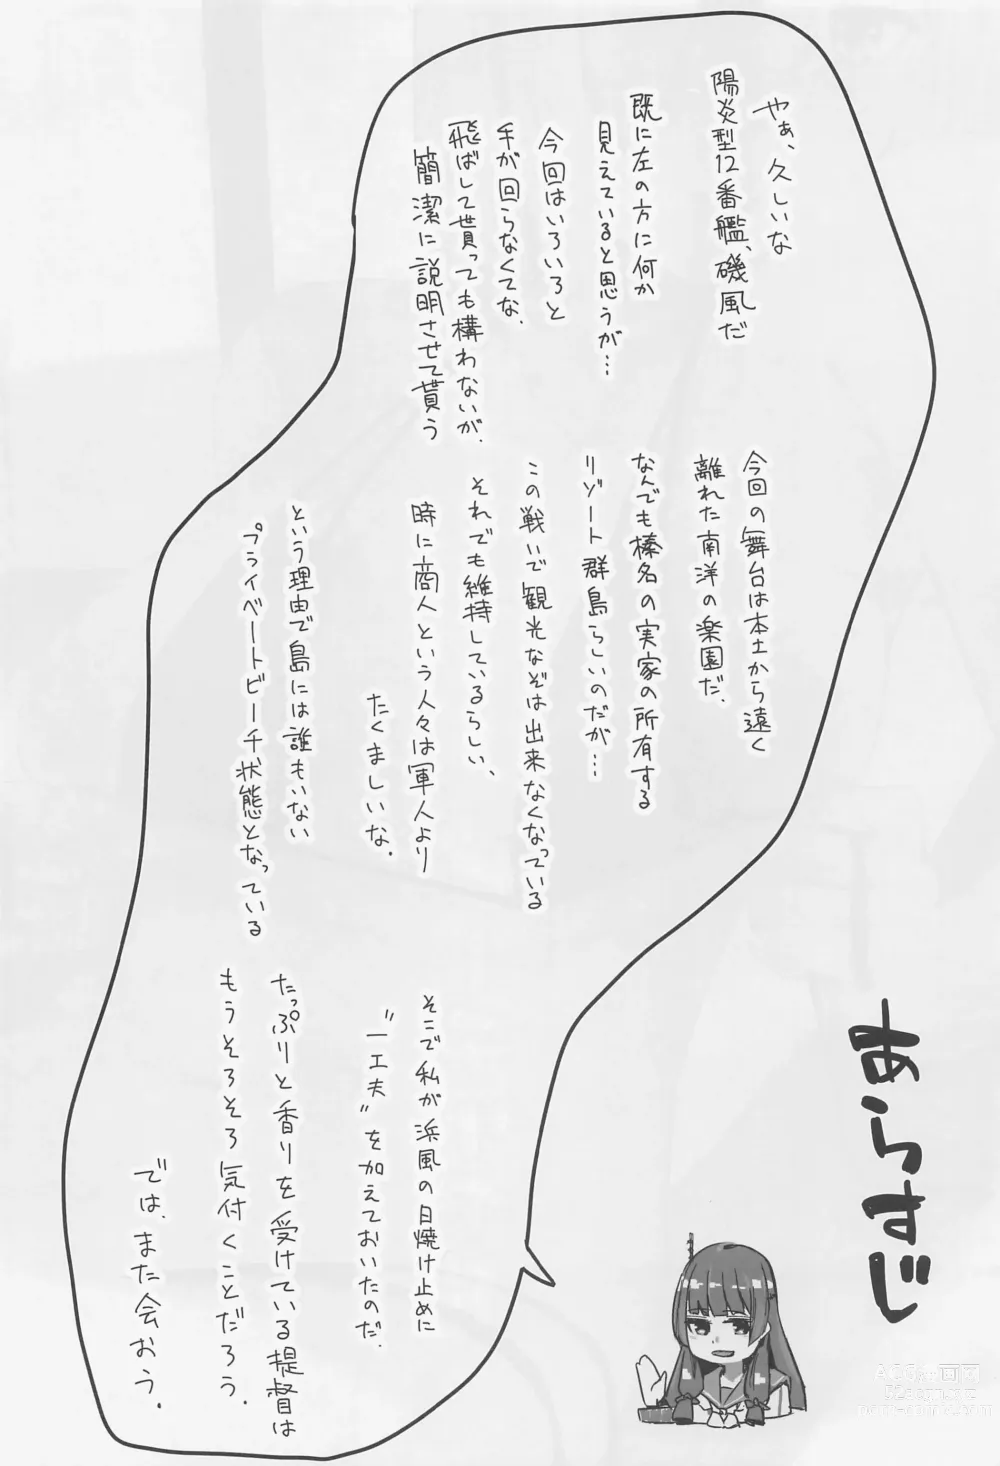 あらすじ
やぁ、久しいな
陽炎型12番艦、磯風だ
既に左の方に何か
見えていると思うが…
今回はいろいろと
手が回らなくてな、
飛ばして貰っても構わないが、
簡潔に説明させて貰う
今回の舞台は本土から遠く
離れた南洋の楽園だ、
なんでも榛名の実家の所有する
リゾート群島らしいのだが…
この戦いで観光なぞは出来なくなっている
それでも維持しているらしい、
時に商人という人々は軍人より
たくましいな.
という理由で島には誰もいない
プライベートビーチ状態となっている
そこで私が浜風の日焼け止めに
"一工夫"を加えておいたのだ.
たっぷりと香りを受けている提督は
もうそろそろ気付くことだろう.
では、また会おう.